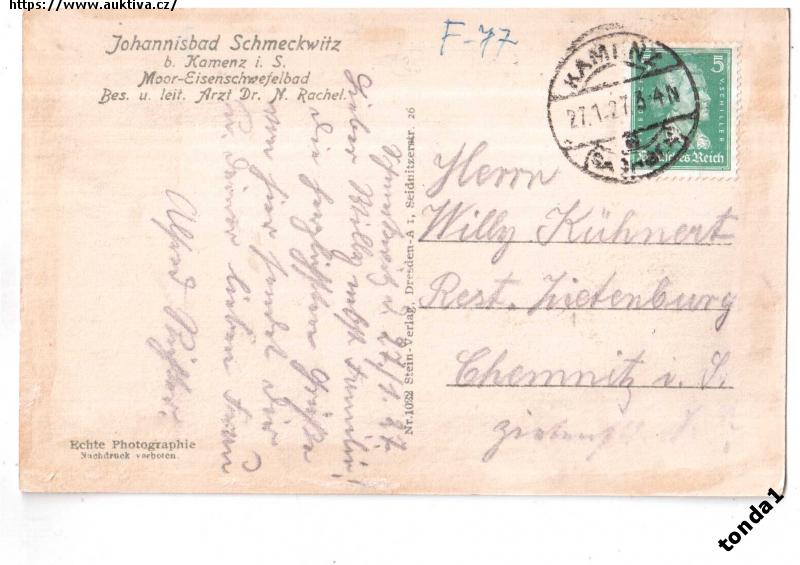 https://www.auktiva.cz/
Johannisbad Schmeckwitz
b. Kamenz i. S.
Moor-Eisenschwefelbad
Bes. u. leit. Arzt Dr. N. Rachel.
F-77
KAMENZ
27.1.27. 3-4N
(SACHSEN)
5
V. SCHILLER
Deutsches Reich
Schmeckwitz d. 27/1. 27
Lieber Willy nebst Familie!
Die herzlichsten Grüße
von hier sendet Dir
u. Deiner lieben Frau
Alfred
Nr. 1022 Stein-Verlag, Dresden-A 1, Seidnitzerstr. 26
Herrn
Willy Kühnert
Rest. Zietenburg
Chemnitz i. S.
Echte Photographie
Nachdruck verboten.
tonda1